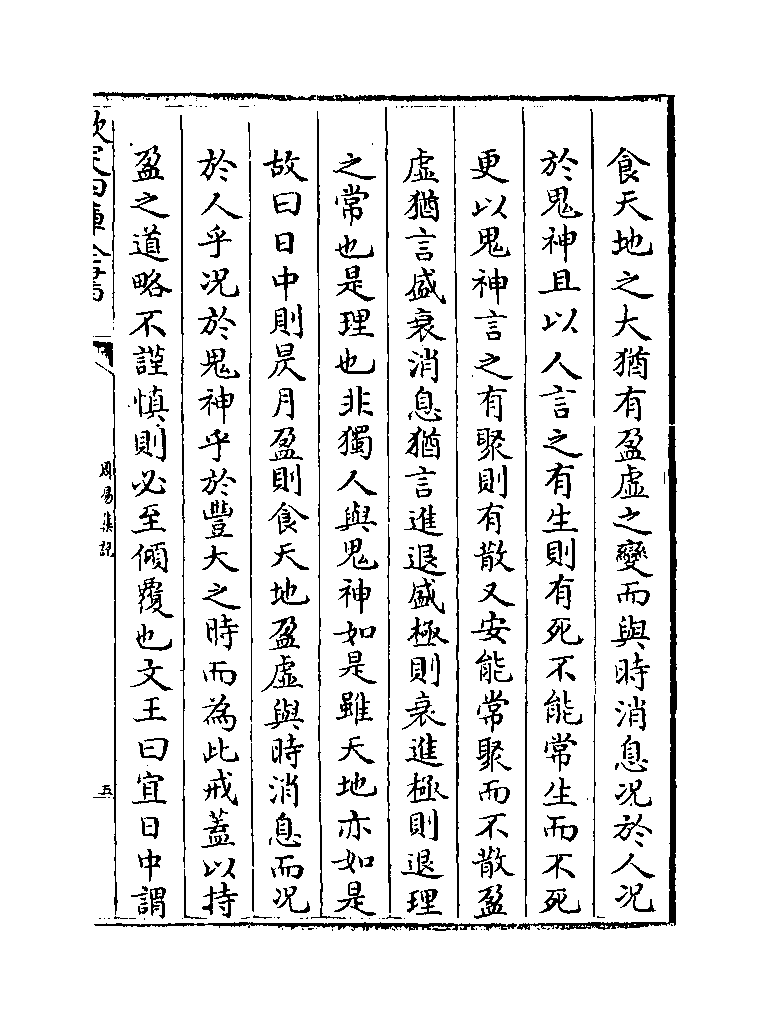 食天地之大猶有盈虛之變而與時消息况於人况
於鬼神且以人言之有生則有死不能常生而不死
更以鬼神言之有聚則有散又安能常聚而不散盈
虛猶言盛衰消息猶言進退盛極則衰進極則退理
之常也是理也非獨人與鬼神如是雖天地亦如是
故曰日中則昃月盈則食天地盈虛與時消息而况
於人乎况於鬼神乎於豐大之時而為此戒蓋以持
盈之道略不謹慎則必至傾覆也文王曰宜日中謂
欽定四庫全書
周易集說
五